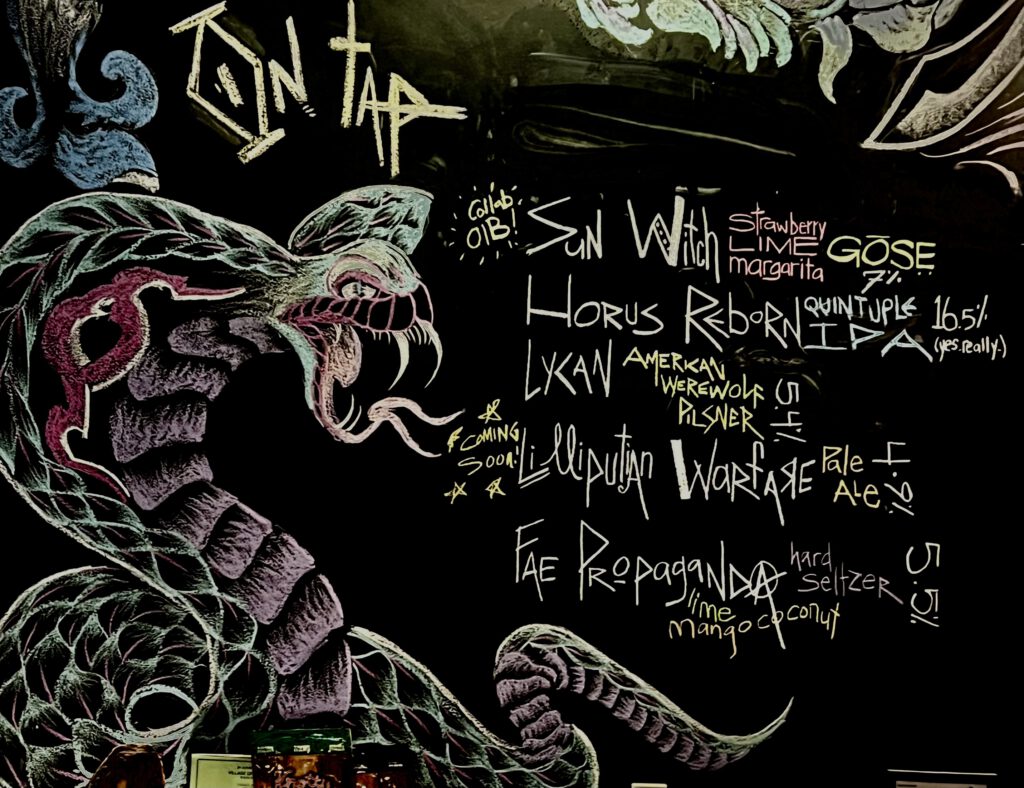 ON TAP
Collab
OIB!
SUN WitcH
Strawberry
LIME
margarita
GŌSE
7%
HORUS REBORN
QUINTUPLE
IPA
16.5%
(yes. really.)
LYCAN
AMERICAN
WEREWOLF
PILSNER
5.4%
COMING
SOON!
LilliputIAN WARFARE
Pale
ALE
4.9%
FAE PROPAGANDA
hard
SELTZER
5.5%
lime
mango coconut